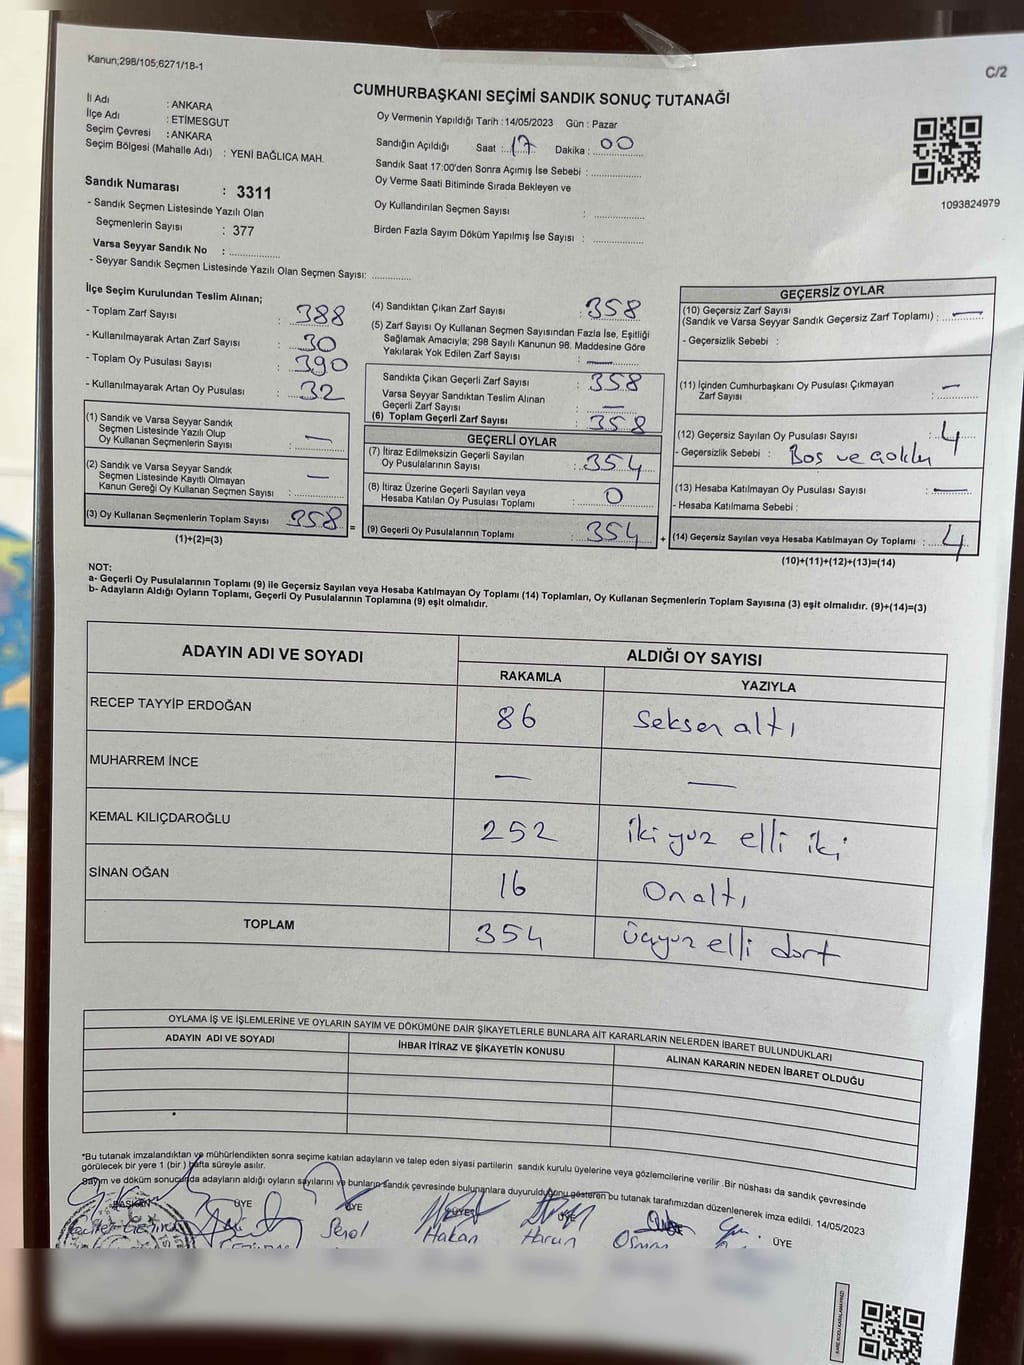 Kanun;298/105;6271/18-1
C/2
CUMHURBAŞKANI SEÇİMİ SANDIK SONUÇ TUTANAĞI
İl Adı : ANKARA
İlçe Adı : ETİMESGUT
Seçim Çevresi : ANKARA
Seçim Bölgesi (Mahalle Adı) : YENİ BAĞLICA MAH.
Sandık Numarası : 3311
- Sandık Seçmen Listesinde Yazılı Olan
Seçmenlerin Sayısı : 377
Varsa Seyyar Sandık No : ...............
- Seyyar Sandık Seçmen Listesinde Yazılı Olan Seçmen Sayısı: ............
Oy Vermenin Yapıldığı Tarih :14/05/2023 Gün : Pazar
Sandığın Açıldığı Saat : 17 Dakika : 00
Sandık Saat 17:00'den Sonra Açımış İse Sebebi : ...............
Oy Verme Saati Bitiminde Sırada Bekleyen ve
Oy Kullandırılan Seçmen Sayısı : ...............
Birden Fazla Sayım Döküm Yapılmış İse Sayısı : ...............
1093824979
İlçe Seçim Kurulundan Teslim Alınan;
- Toplam Zarf Sayısı : 388
- Kullanılmayarak Artan Zarf Sayısı : 30
- Toplam Oy Pusulası Sayısı : 390
- Kullanılmayarak Artan Oy Pusulası : 32
(1) Sandık ve Varsa Seyyar Sandık
Seçmen Listesinde Yazılı Olup
Oy Kullanan Seçmenlerin Sayısı : —
(2) Sandık ve Varsa Seyyar Sandık
Seçmen Listesinde Kayıtlı Olmayan
Kanun Gereği Oy Kullanan Seçmen Sayısı : —
(3) Oy Kullanan Seçmenlerin Toplam Sayısı 358 =
(1)+(2)=(3)
(4) Sandıktan Çıkan Zarf Sayısı : 358
(5) Zarf Sayısı Oy Kullanan Seçmen Sayısından Fazla İse, Eşitliği
Sağlamak Amacıyla; 298 Sayılı Kanunun 98. Maddesine Göre
Yakılarak Yok Edilen Zarf Sayısı : —
Sandıkta Çıkan Geçerli Zarf Sayısı : 358
Varsa Seyyar Sandıktan Teslim Alınan
Geçerli Zarf Sayısı : —
(6) Toplam Geçerli Zarf Sayısı : 358
GEÇERLİ OYLAR
(7) İtiraz Edilmeksizin Geçerli Sayılan
Oy Pusulalarının Sayısı : 354
(8) İtiraz Üzerine Geçerli Sayılan veya
Hesaba Katılan Oy Pusulası Toplamı : 0
(9) Geçerli Oy Pusulalarının Toplamı : 354 +
GEÇERSİZ OYLAR
(10) Geçersiz Zarf Sayısı
(Sandık ve Varsa Seyyar Sandık Geçersiz Zarf Toplamı) : —
- Geçersizlik Sebebi :
(11) İçinden Cumhurbaşkanı Oy Pusulası Çıkmayan
Zarf Sayısı : —
(12) Geçersiz Sayılan Oy Pusulası Sayısı : 4
- Geçersizlik Sebebi : Boş ve
(13) Hesaba Katılmayan Oy Pusulası Sayısı : —
- Hesaba Katılmama Sebebi :
(14) Geçersiz Sayılan veya Hesaba Katılmayan Oy Toplamı : 4
(10)+(11)+(12)+(13)=(14)
NOT:
a- Geçerli Oy Pusulalarının Toplamı (9) ile Geçersiz Sayılan veya Hesaba Katılmayan Oy Toplamı (14) Toplamları, Oy Kullanan Seçmenlerin Toplam Sayısına (3) eşit olmalıdır. (9)+(14)=(3)
b- Adayların Aldığı Oyların Toplamı, Geçerli Oy Pusulalarının Toplamına (9) eşit olmalıdır.
ADAYIN ADI VE SOYADI ALDIĞI OY SAYISI
RAKAMLA YAZIYLA
RECEP TAYYİP ERDOĞAN 86 Seksen altı
MUHARREM İNCE — —
KEMAL KILIÇDAROĞLU 252 iki yuz elli iki
SİNAN OĞAN 16 Onaltı
TOPLAM 354 üçyuz elli dört
OYLAMA İŞ VE İŞLEMLERİNE VE OYLARIN SAYIM VE DÖKÜMÜNE DAİR ŞİKAYETLERLE BUNLARA AİT KARARLARIN NELERDEN İBARET BULUNDUKLARI
ADAYIN ADI VE SOYADI İHBAR İTİRAZ VE ŞİKAYETİN KONUSU ALINAN KARARIN NEDEN İBARET OLDUĞU
*Bu tutanak imzalandıktan ve mühürlendikten sonra seçime katılan adayların ve talep eden siyasi partilerin sandık kurulu üyelerine veya gözlemcilerine verilir .Bir nüshası da sandık çevresinde
görülecek bir yere 1 (bir ) hafta süreyle asılır.
Sayım ve döküm sonucunda adayların aldığı oyların sayılarını ve bunların sandık çevresinde bulunanlara duyurulduğunu gösteren bu tutanak tarafımızdan düzenlenerek imza edildi. 14/05/2023
BAŞKAN ÜYE ÜYE ÜYE ÜYE ÜYE
Şenol Hakan Harun Osman